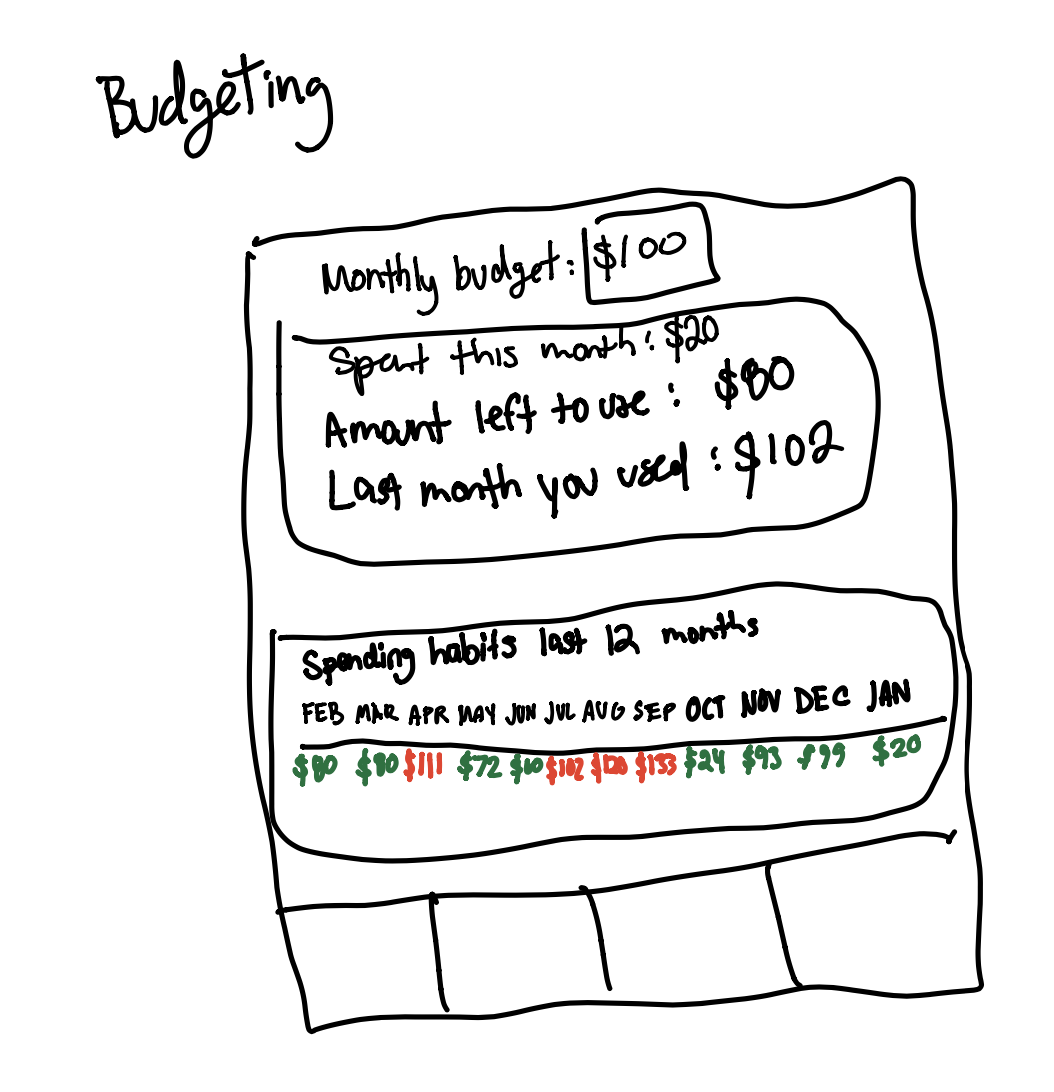 Budgeting
Monthly budget: $100
Spent this month: $20
Amount left to use: $80
Last month you used: $102
Spending habits last 12 months
FEB MAR APR MAY JUN JUL AUG SEP OCT NOV DEC JAN
$80 $80 $111 $72 $102 $133 $24 $93 $99 $20